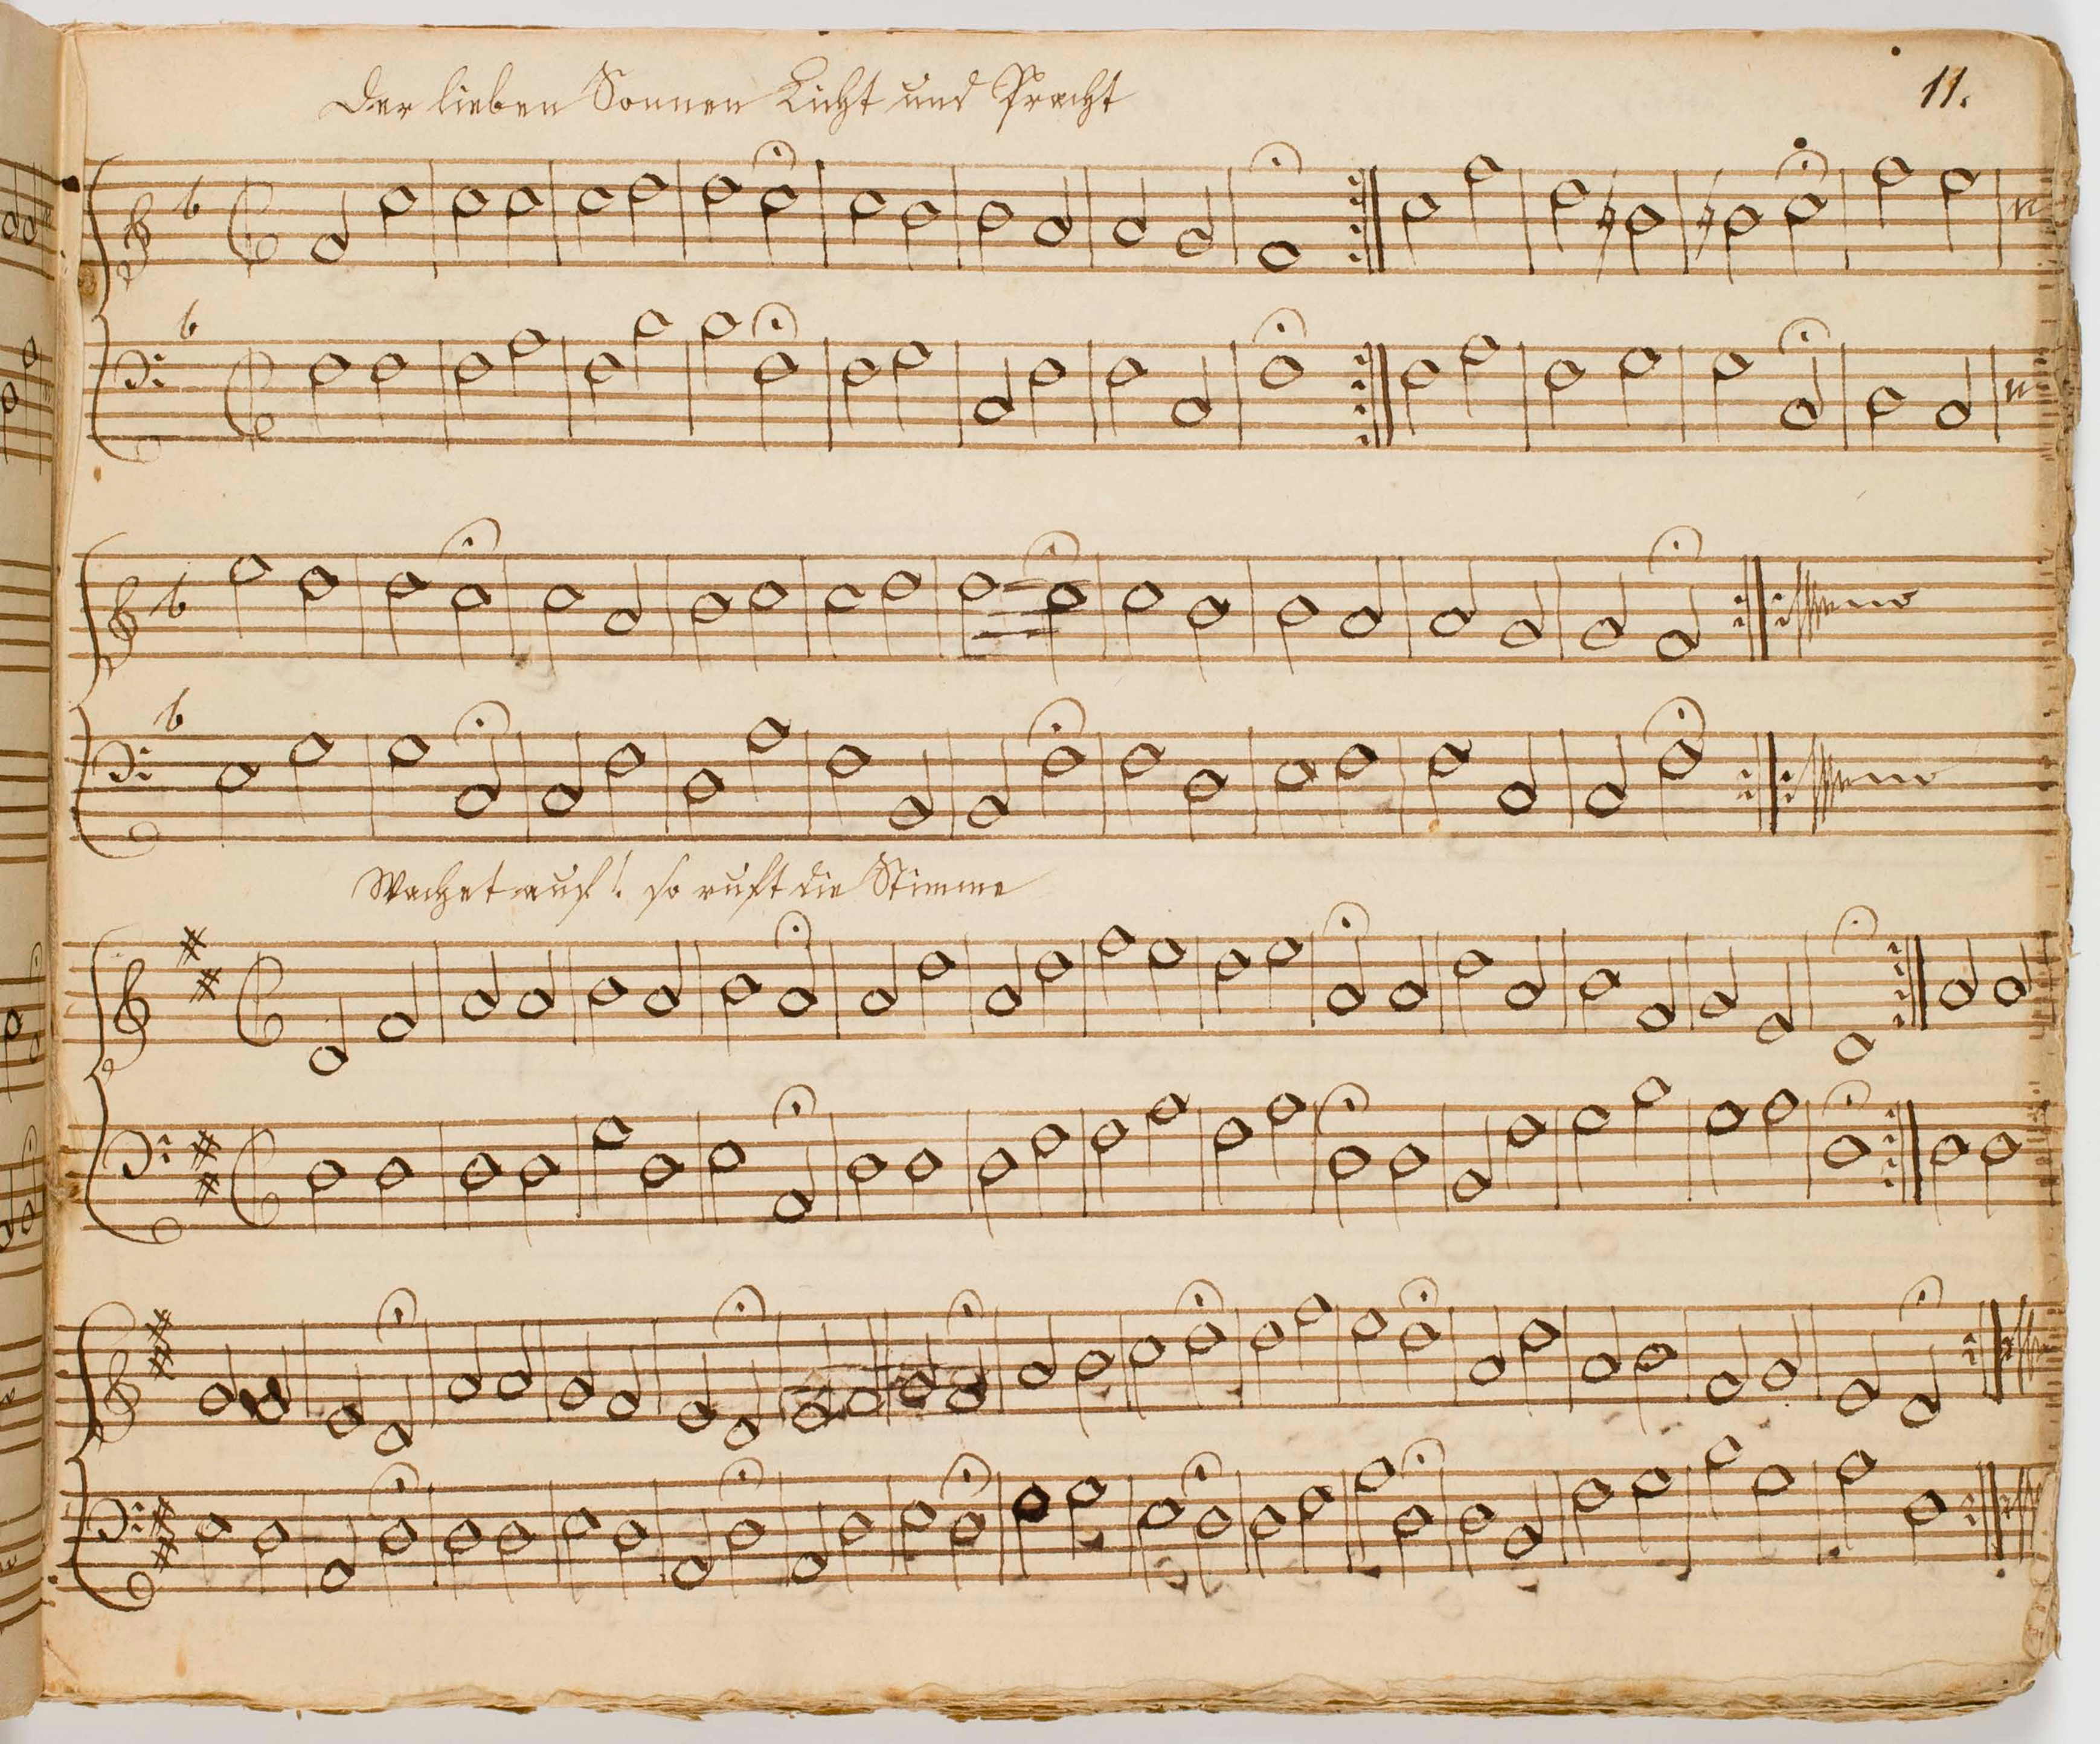 Der lieben Sonnen Licht und Pracht
11.
Wachet auf! so ruft die Stimme